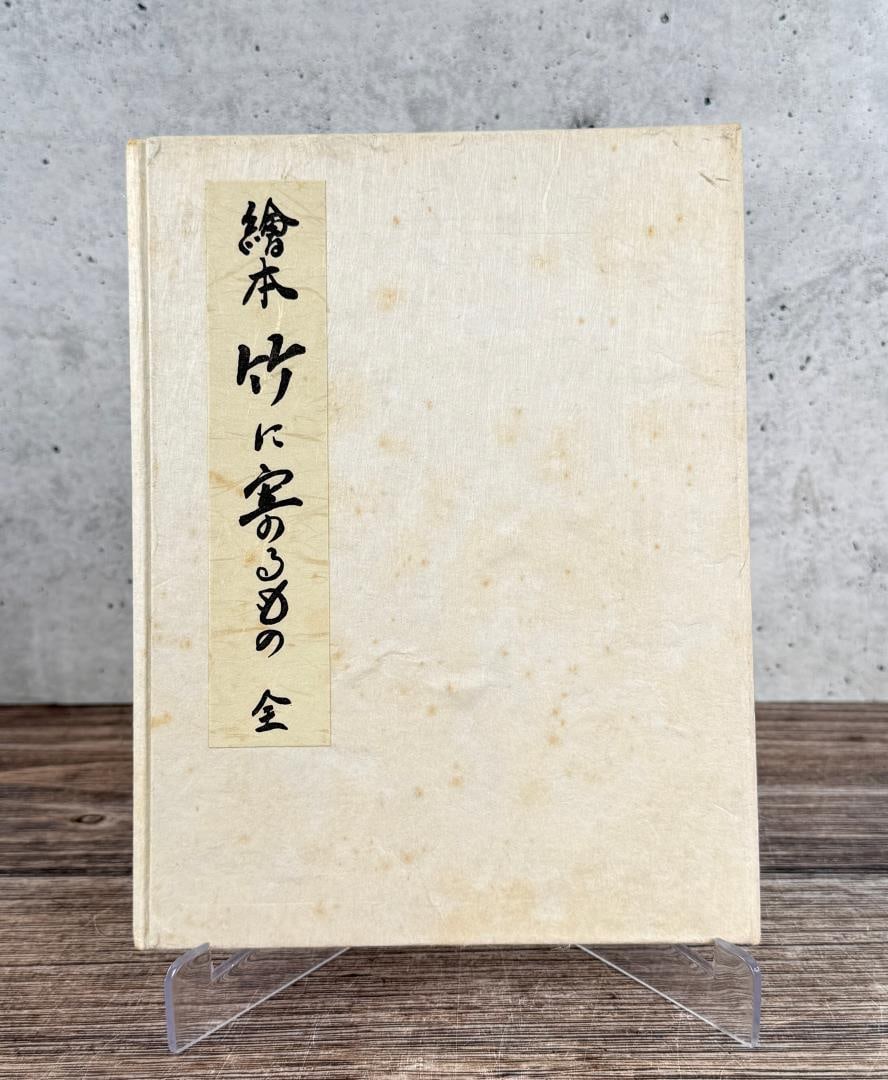 繪本 竹に寄るもの 全